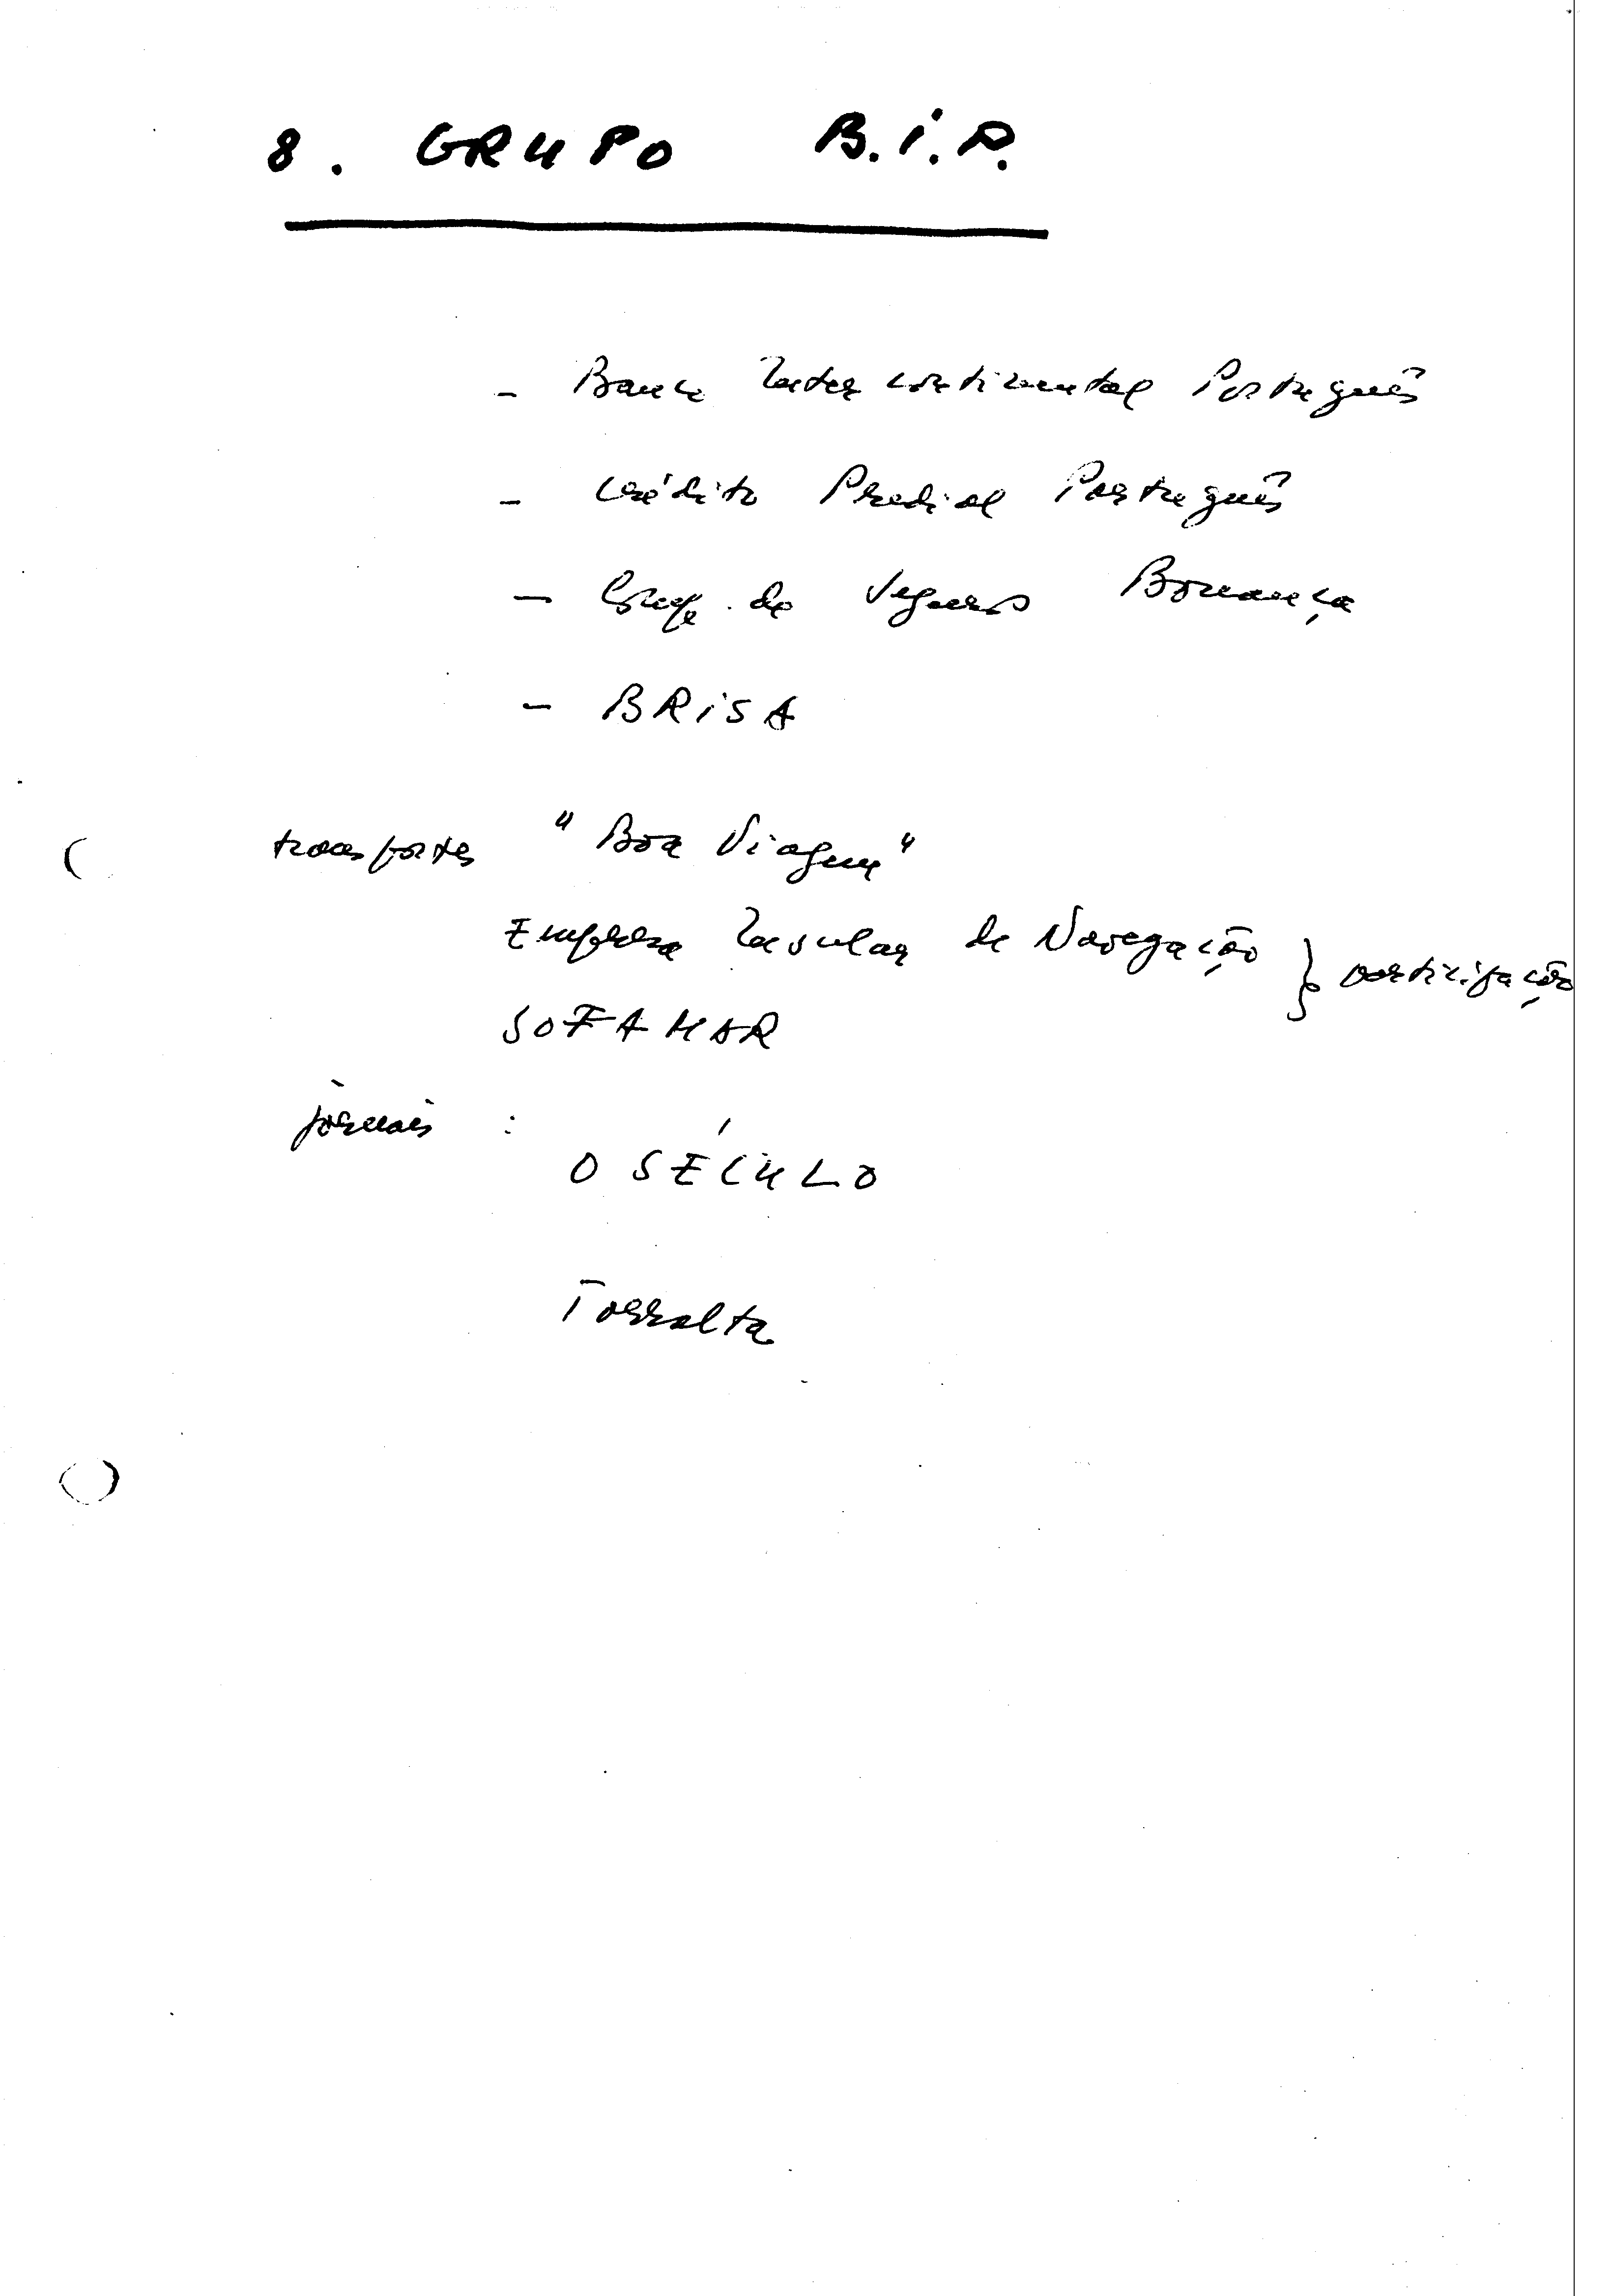 8. GRUPO B.I.P.
- Banco Intercontinental Português
- Crédito Predial Português
- Comp. de Seguros Bonança
- BRISA
transportes "Boa Viagem"
Empresa Insular de Navegação } participação
SOFAMAR
jornais :
O SÉCULO
Torralta